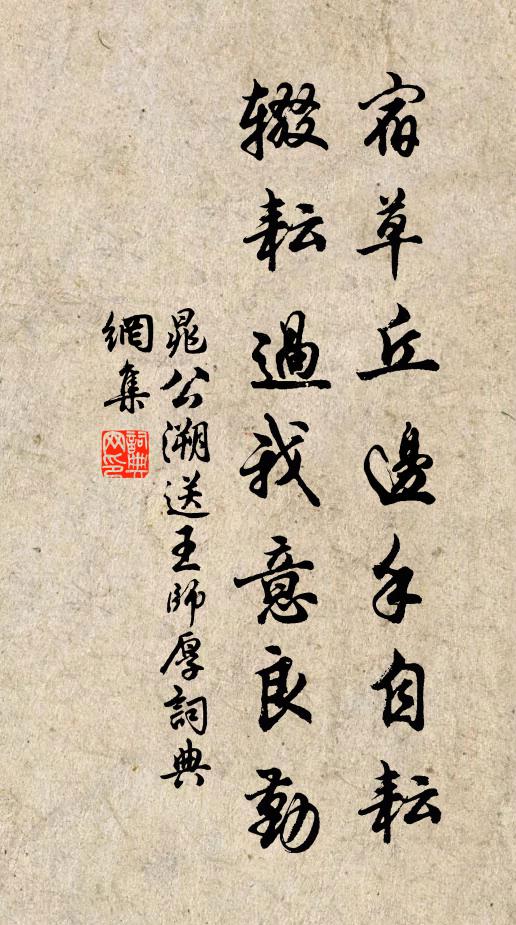 宿草丘邊手自耘
輟耘過我意良勤
晁公溯送王師厚詞典
網集
詞典網印